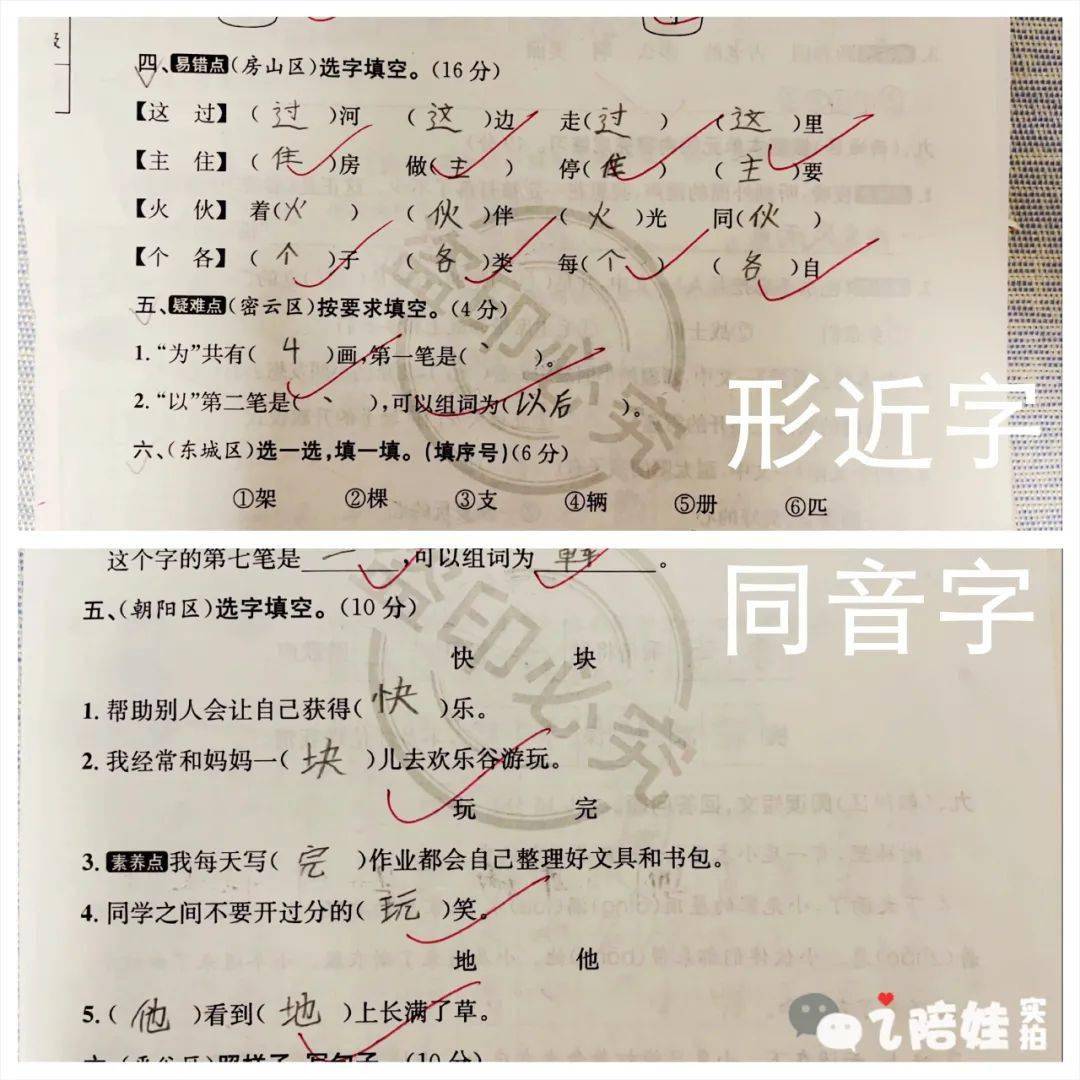 四、易错点(房山区)选字填空。(16分)
【这 过】 (过)河 (这)边 走(过) (这)里
【主 住】 (住)房 做(主) 停(住) (主)要
【火 伙】 着(火) (伙)伴 (火)光 同(伙)
【个 各】 (个)子 (各)类 每(个) (各)自
五、疑难点(密云区)按要求填空。(4分)
1.“为”共有( 4 )画,第一笔是(丶)。
2.“以”第二笔是(丶),可以组词为(以后)。
六、(东城区)选一选,填一填。(填序号)(6分)
①架 ②棵 ③支 ④辆 ⑤册 ⑥匹
形近字
盗印必究
这个字的第七笔是 一 ,可以组词为 。
五、(朝阳区)选字填空。(10分)
快 块
1.帮助别人会让自己获得(快)乐。
2.我经常和妈妈一(块)儿去欢乐谷游玩。
玩 完
3.素养点我每天写(完)作业都会自己整理好文具和书包。
4.同学之间不要开过分的(玩)笑。
地 他
5.(他)看到(地)上长满了草。
同音字
盗印必究
陪娃实拍